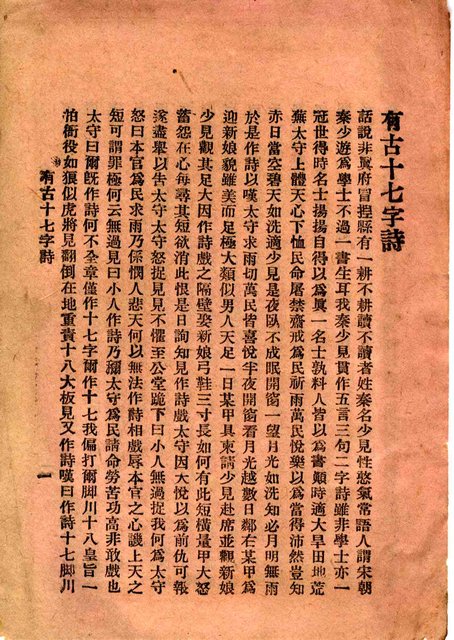 有古十七字詩
話說非異府冒捏縣有一耕不耕讀不讀者姓秦名少見性慾氣常語人謂宋朝
秦少遊爲學士不過一書生耳我秦少見貫作五言三句二字詩雖非學士亦一
冠世得時名士揚揚自得以爲眞一名士孰料人皆以爲書顚時適大旱田地荒
蕪太守上體天心下恤民命屠禁齋戒爲民祈雨萬民悅樂以爲當得沛然豈知
赤日當空碧天如洗適少見是夜臥不成眠開窗一望月光如洗知必月明無雨
於是作詩以嘆太守求雨切萬民皆喜悅半夜開窗看月光越數日鄰右某甲爲
迎新娘貌雖美而足極大類似男人天足一日某甲具柬請少見赴席並觀新娘
少見觀其足大因作詩戲之隔壁娶新娘弓鞋三寸長如何有此短橫量甲大怒
當怨在心每尋其短欲消此恨是日詢知見作詩戲太守因大悅以爲前仇可報
遂盡舉以告太守太守怒捉見見不懼至公堂跪下曰小人無過捉我何爲太守
怒曰本官爲民求雨乃係憫人悲天何以無法作詩相戲辱本官之心譏上天之
短可謂罪極何云無過見曰小人作詩乃彌太守爲民請命勞苦功高非敢戲也
太守曰爾旣作詩何不全章僅作十七字爾作十七我偏打爾脚川十八皇旨一
怕衙役如狼似虎將見翻倒在地重責十八大板見又作詩嘆曰作詩十七脚川
有古十七字詩
一